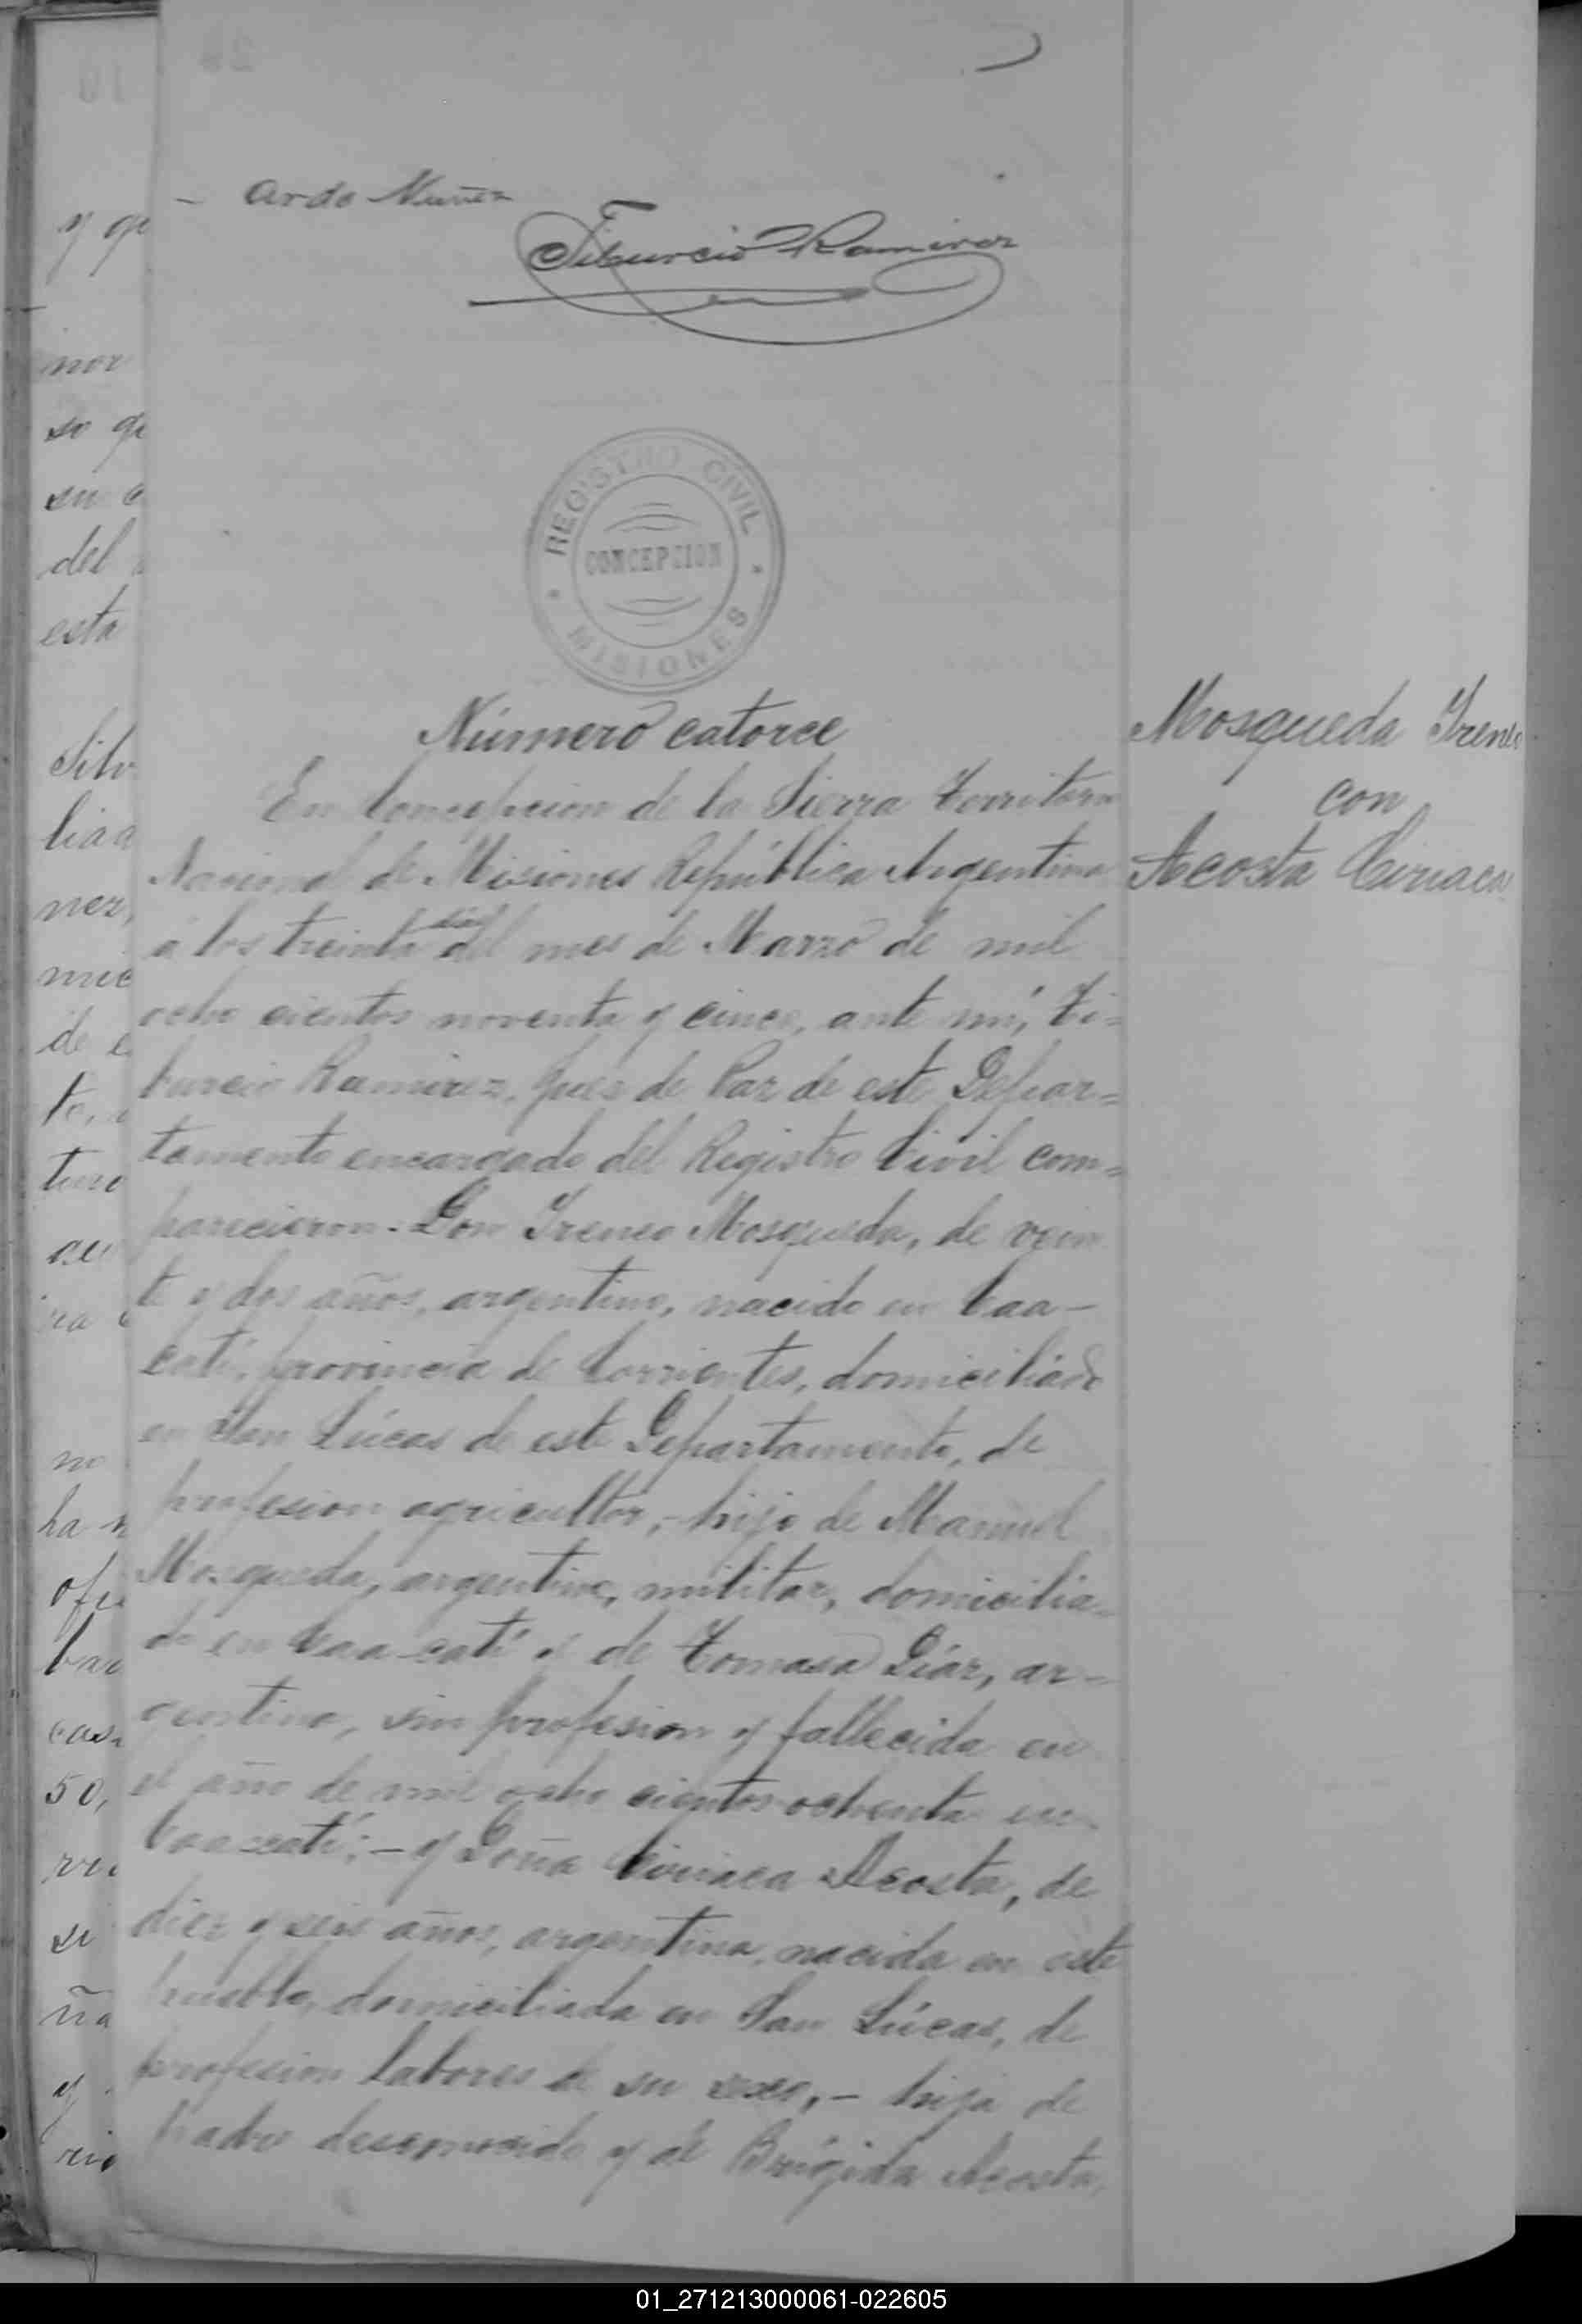 ardo Nuñez
Tiburcio Ramirez
REGISTRO CIVIL
CONCEPCION
MISIONES
Número catorce
Mosqueda Ireneo
con
Acosta Ciriaca
En Concepcion de la Sierra Territorio
Nacional de Misiones República Argentina
á los treinta dias del mes de Marzo de mil
ocho cientos noventa y cinco, ante mí, Ti=
burcio Ramirez, Juez de Paz de este Depar=
tamento encargado del Registro Civil com=
parecieron - Don Ireneo Mosqueda, de vein
te y dos años, argentino, nacido en Caa-
catí, provincia de Corrientes, domiciliado
en San Lúcas de este Departamento, de
profesion agricultor,- hijo de Manuel
Mosqueda, argentino, militar, domicilia=
do en Caa-catí y de Tomasa Díaz, ar=
gentina, sin profesion y fallecida en
el año de mil ocho cientos ochenta en
Caa-catí;- y Doña Ciriaca Acosta, de
diez y seis años, argentina, nacida en este
pueblo, domiciliada en San Lúcas, de
profesion labores de su sexo,- hija de
padre desconocido y de Brígida Acosta,
y
nor
so
su
del
esta
Silv
nez,
mie
de
no
ha
cas
50,
si
ña
y
01_271213000061-022605